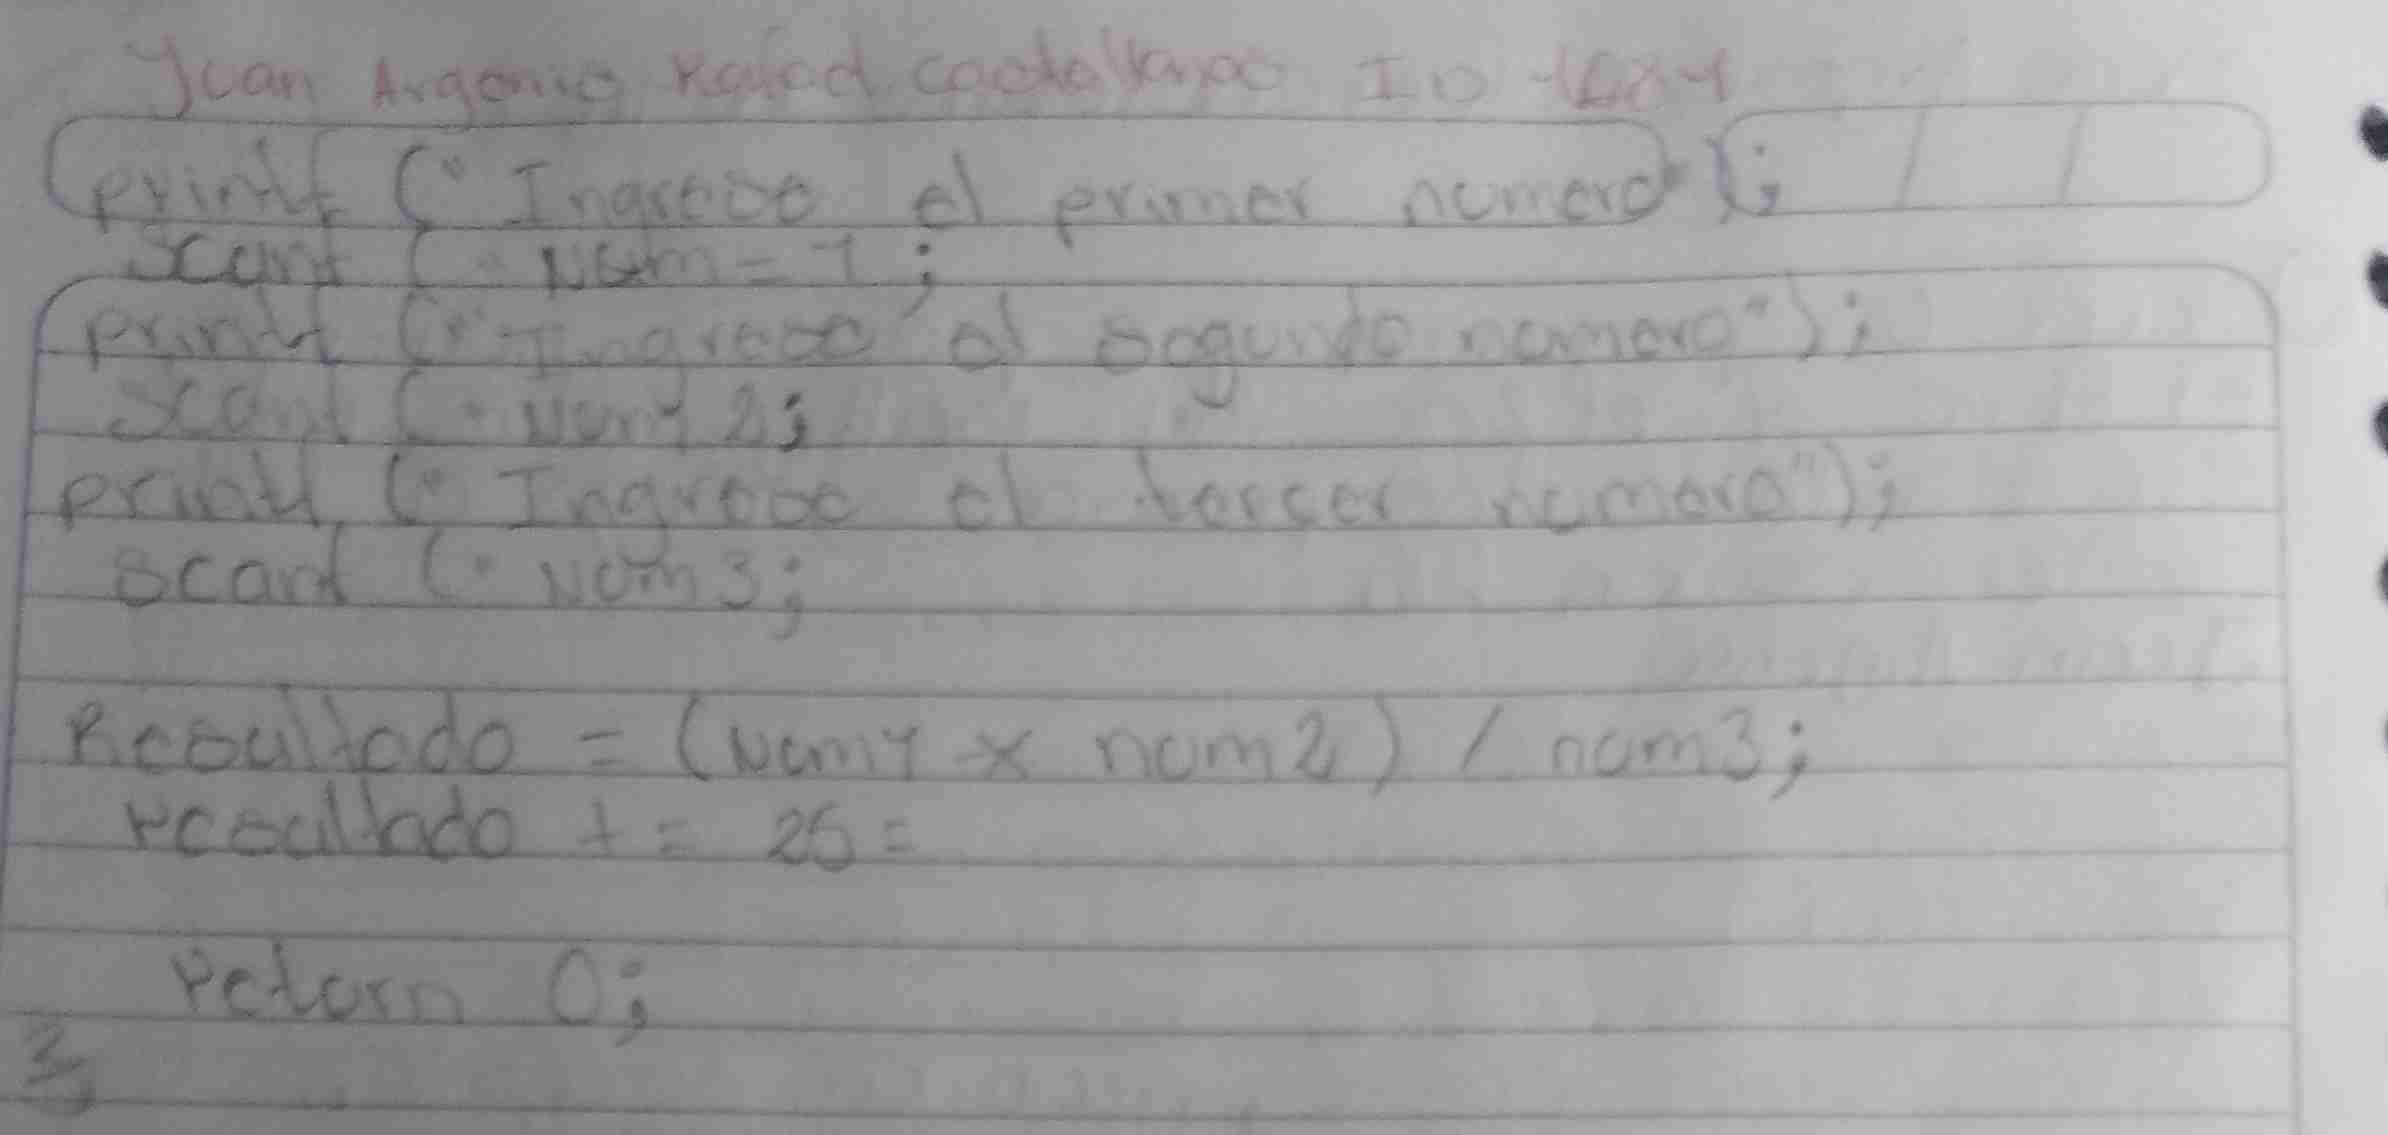 Juan Argenis Castellanos ID
printf (" Ingrese el primer numero");
scanf (" Num = 1;
printf (" Ingrese el segundo numero");
scanf (" Num 2;
printf (" Ingrese el tercer numero");
scanf (" Num3;
Resultado = (Num1 x num2) / num3;
resultado += 25 =
return 0;
}